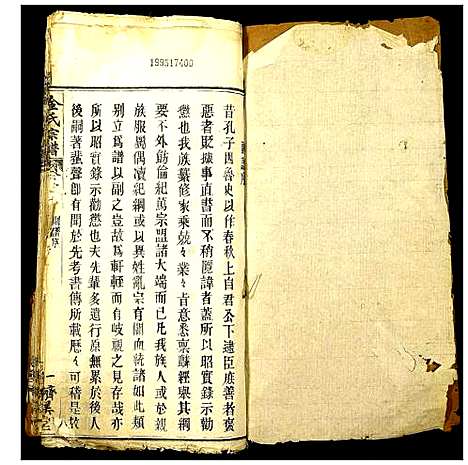 199517400
昔孔子因魯史以作春秋上自君公下逮臣庶善者褒
惡者貶據事直書而不稍匿諱者蓋所以昭實錄示勸
懲也我族纂修家乗兢々業々肯悉稟蘇經舉其綱
要不外彝倫紀萬宗盟諸大端而已我族人或於親
族服罔偶凟紀綱或以異姓亂宗有關血統諸如此類
別立爲譜以副之豈故爲軒輊而有岐視之見存哉亦
所以昭實錄示勸懲也夫先輩多遺行原無累於後人
後嗣著蜚聲卽有聞於先考書傳所載歷々可稽是故
金氏宗譜
八